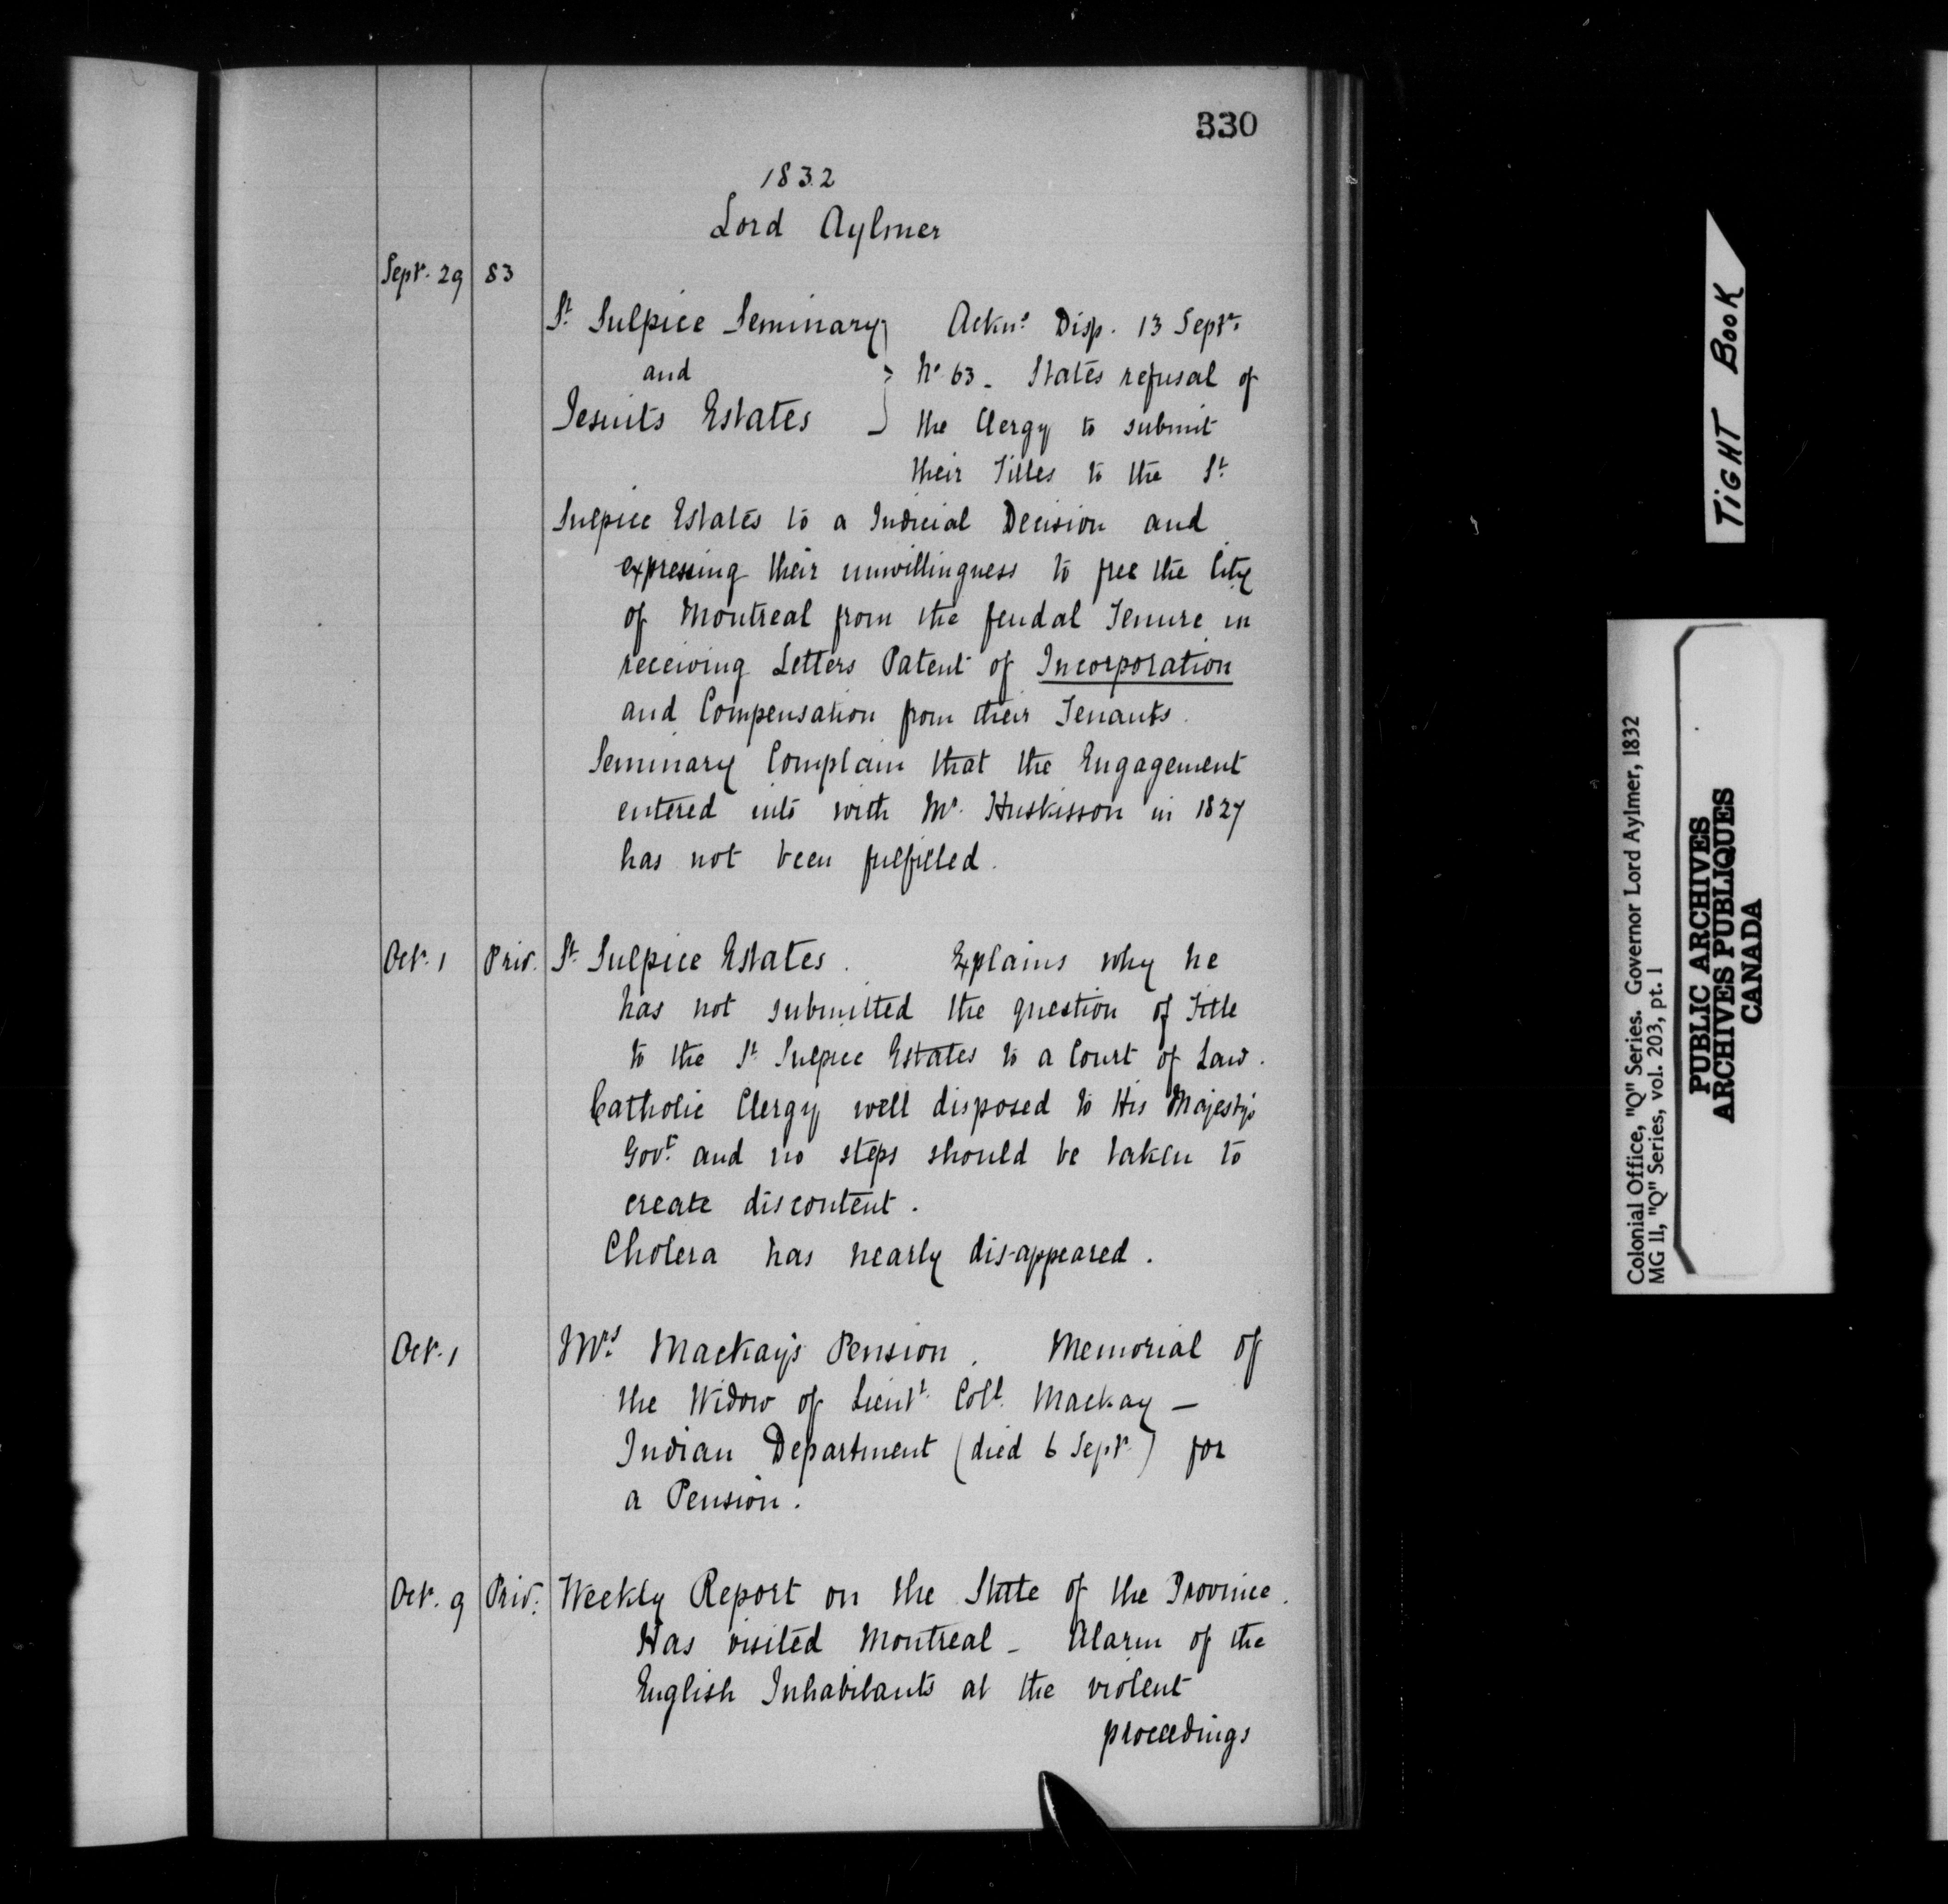 330
1832
Lord Aylmer
Sept. 29 83
St Sulpice Seminary Ackns Disp. 13 Septr
and No 63 - States refusal of
Jesuits Estates the Clergy to submit
their Titles to the St
Sulpice Estates to a Judicial Decision and
expressing their unwillingness to free the City
of Montreal from the feudal Tenure in
receiving Letters Patent of Incorporation
and Compensation from their Tenants.
Seminary Complain that the Engagement
entered into with Mr. Huskisson in 1827
has not been fulfilled.
Oct. 1 Priv. St Sulpice Estates. Explains why he
has not submitted the question of Title
to the St Sulpice Estates to a Court of Law.
Catholic Clergy well disposed to His Majesty's
Govt. and no steps should be taken to
create discontent.
Cholera has nearly dis-appeared.
Oct. 1 Mrs Mackay's Pension. Memorial of
the Widow of Lieut. Coll. Mackay —
Indian Department (died 6 Septr.) for
a Pension.
Oct. 9 Priv. Weekly Report on the State of the Province.
Has visited Montreal - Alarm of the
English Inhabitants at the violent
proceedings
TIGHT BOOK
Colonial Office, "Q" Series. Governor Lord Aylmer, 1832
MG 11, "Q" Series, vol. 203, pt. 1
PUBLIC ARCHIVES
ARCHIVES PUBLIQUES
CANADA